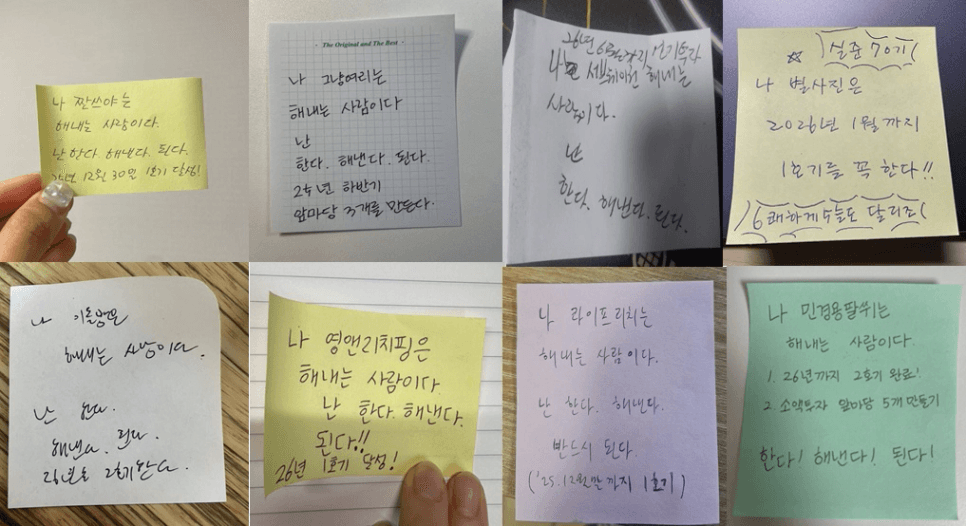 나 짠쓰야는
해내는 사람이다.
난 한다. 해낸다. 된다.
25년 12월 30일 1호기 달성!
The Original and The Best
나 그냥여리는
해내는 사람이다
난
한다. 해낸다. 된다.
25년 하반기
앞마당 3개를 만든다.
26년 6월까지
해내는
사람이다.
난
한다. 해낸다. 된다.
☆ 실준 70기
나 별사진은
2026년 1월까지
1호기를 꼭 한다!!
6쾌하게 5늘도 달리조
나
해내는 사람이다.
난 한다.
해낸다. 된다.
2호기 한다.
나 영앤리치핑은
해내는 사람이다
난 한다. 해낸다.
된다!!
26년 1호기 달성!
나 라이프리치는
해내는 사람이다.
난 한다. 해낸다.
반드시 된다
('25.12월말까지 1호기)
나 민경용딸쒸는
해내는 사람이다.
1. 26년까지 2호기 완료!
2. 소액투자 앞마당 5개 만들기
한다! 해낸다! 된다!